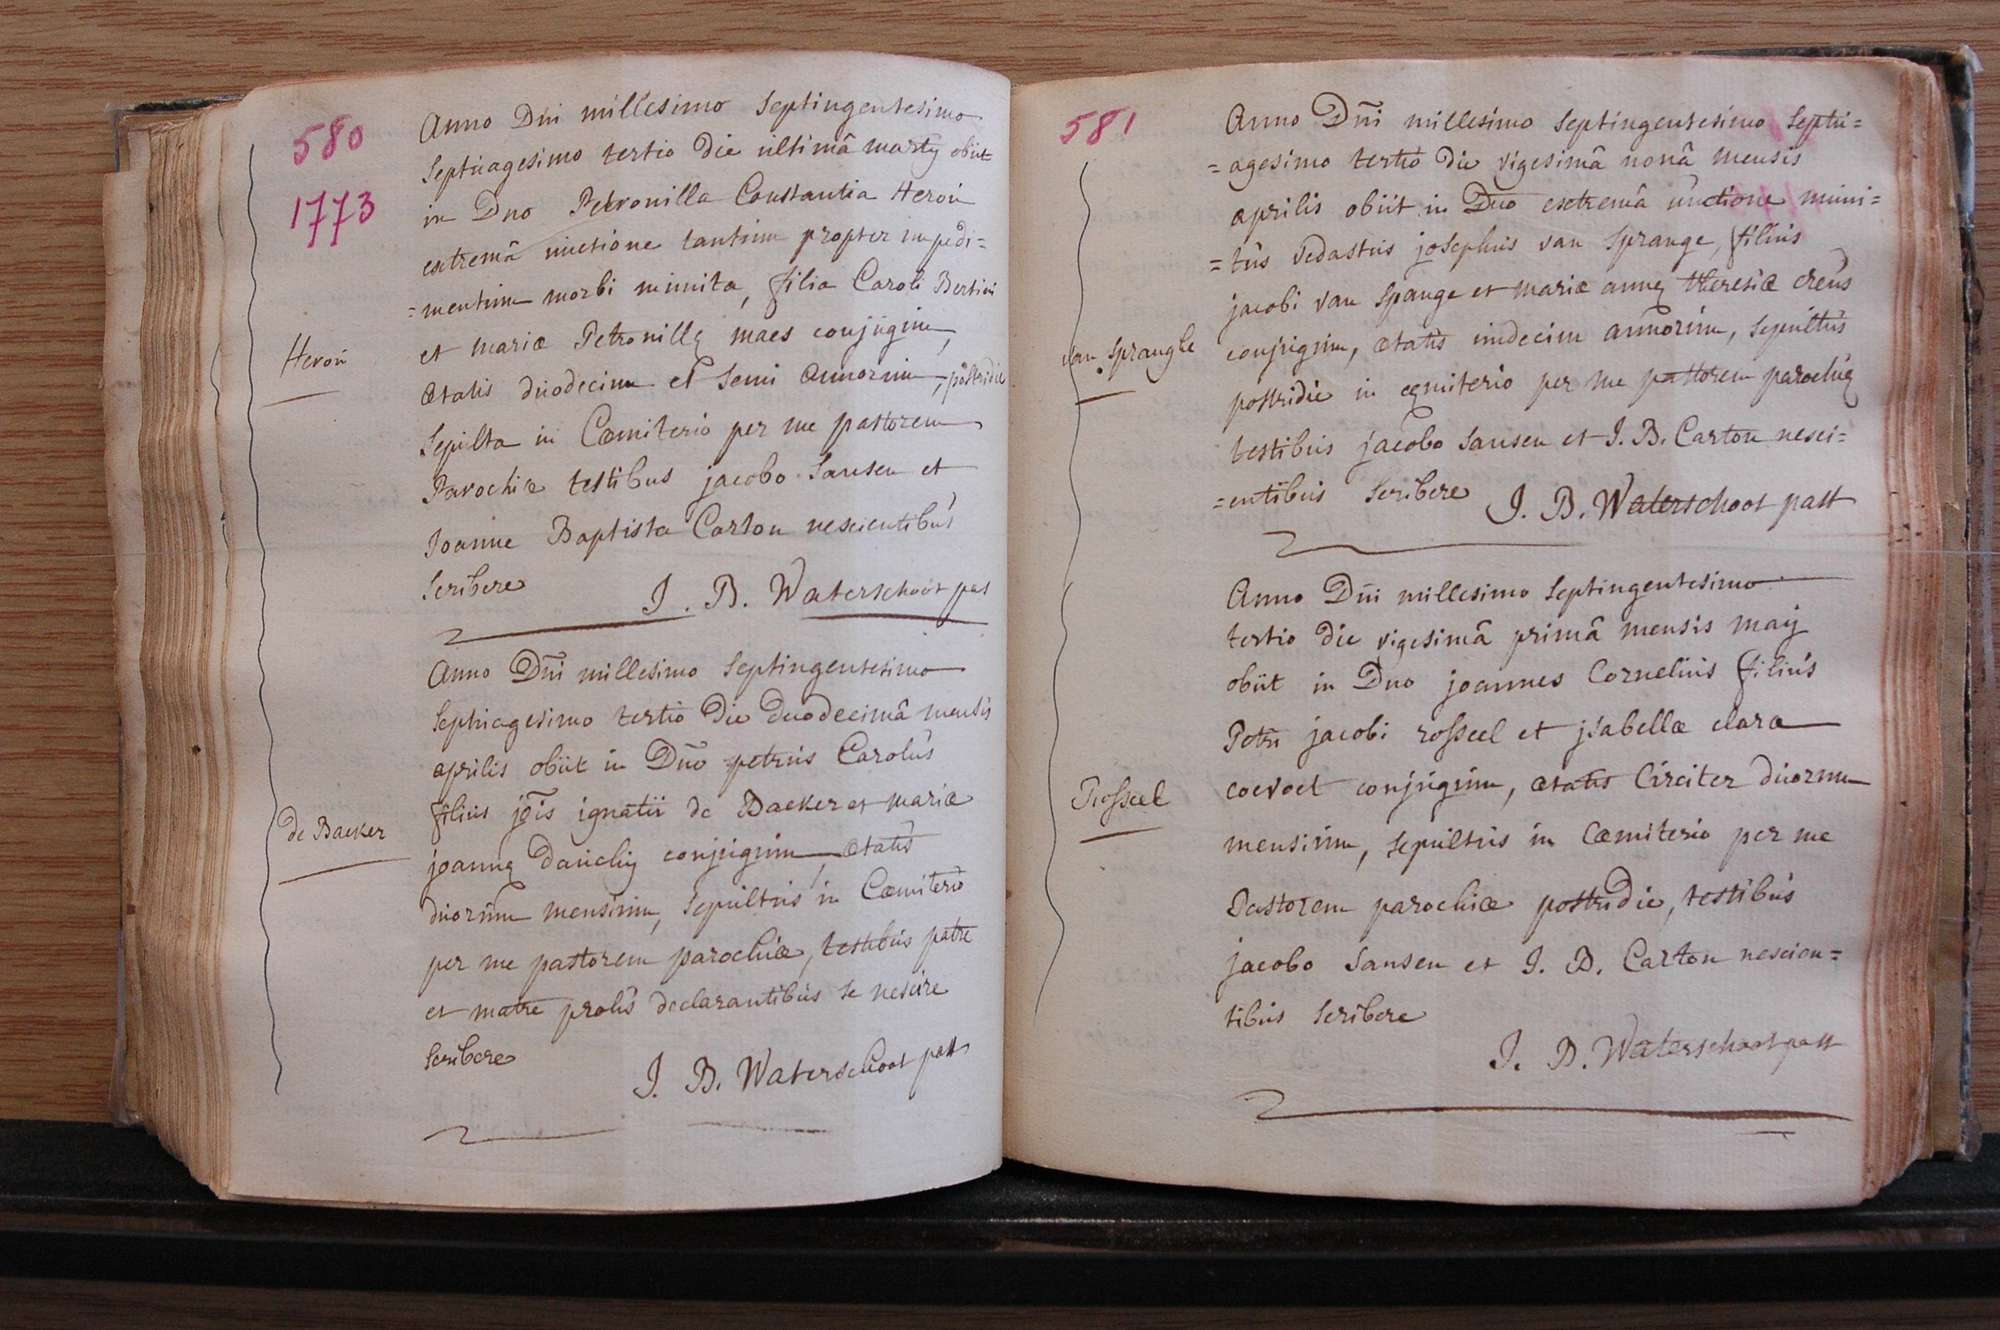 580
1773
Anno Dni millesimo septingentesimo
septuagesimo tertio die ultimâ martij obiit
in Dno Petronilla Constantia Heroù
extremâ unctione tantum propter impedi=
=mentum morbi munita, filia Caroli Bertini
et mariæ Petronillę maes conjugum,
Heroù
ætatis duodecim et semi annorum, postridie
sepulta in Cœmiterio per me pastorem
Parochiæ testibus jacobo Sansen et
Joanne Baptista Carton nescientibus
scribere
J. B. Waterschoot pas
Anno Dni millesimo septingentesimo
septuagesimo tertio die duodecimâ mensis
aprilis obiit in Dno petrus Carolus
filius jois ignatii de Backer et mariæ
de Backer
joannę conjugum, ætatis
duorum mensium, sepultus in Cœmiterio
per me pastorem parochiæ, testibus patre
et matre prolis declarantibus se nescire
scribere
J. B. Waterschoot past
581
Anno Dni millesimo septingentesimo septu=
=agesimo tertio die vigesimâ nonâ mensis
aprilis obiit in Dno extremâ unctione muni=
=tus vedastus josephus van sprange, filius
jacobi van spange et mariæ annę theresiæ creus
van spranghe
conjugum, ætatis undecim annorum, sepultus
postridie in cęmiterio per me pastorem parochię
testibus jacobo sansen et J. B. Carton nesci=
=entibus scribere J. B. Waterschoot past
Anno Dni millesimo septingentesimo
tertio die vigesimâ primâ mensis maij
obiit in Dno joannes Cornelius filius
Petri jacobi rosseel et jsabellæ claræ
Rosseel
coevoet conjugum, ætatis circiter duorum
mensium, sepultus in cœmiterio per me
Pastorem parochiæ postridie, testibus
jacobo sansen et J. B. Carton nescien=
tibus scribere
J. B. Waterschoot past